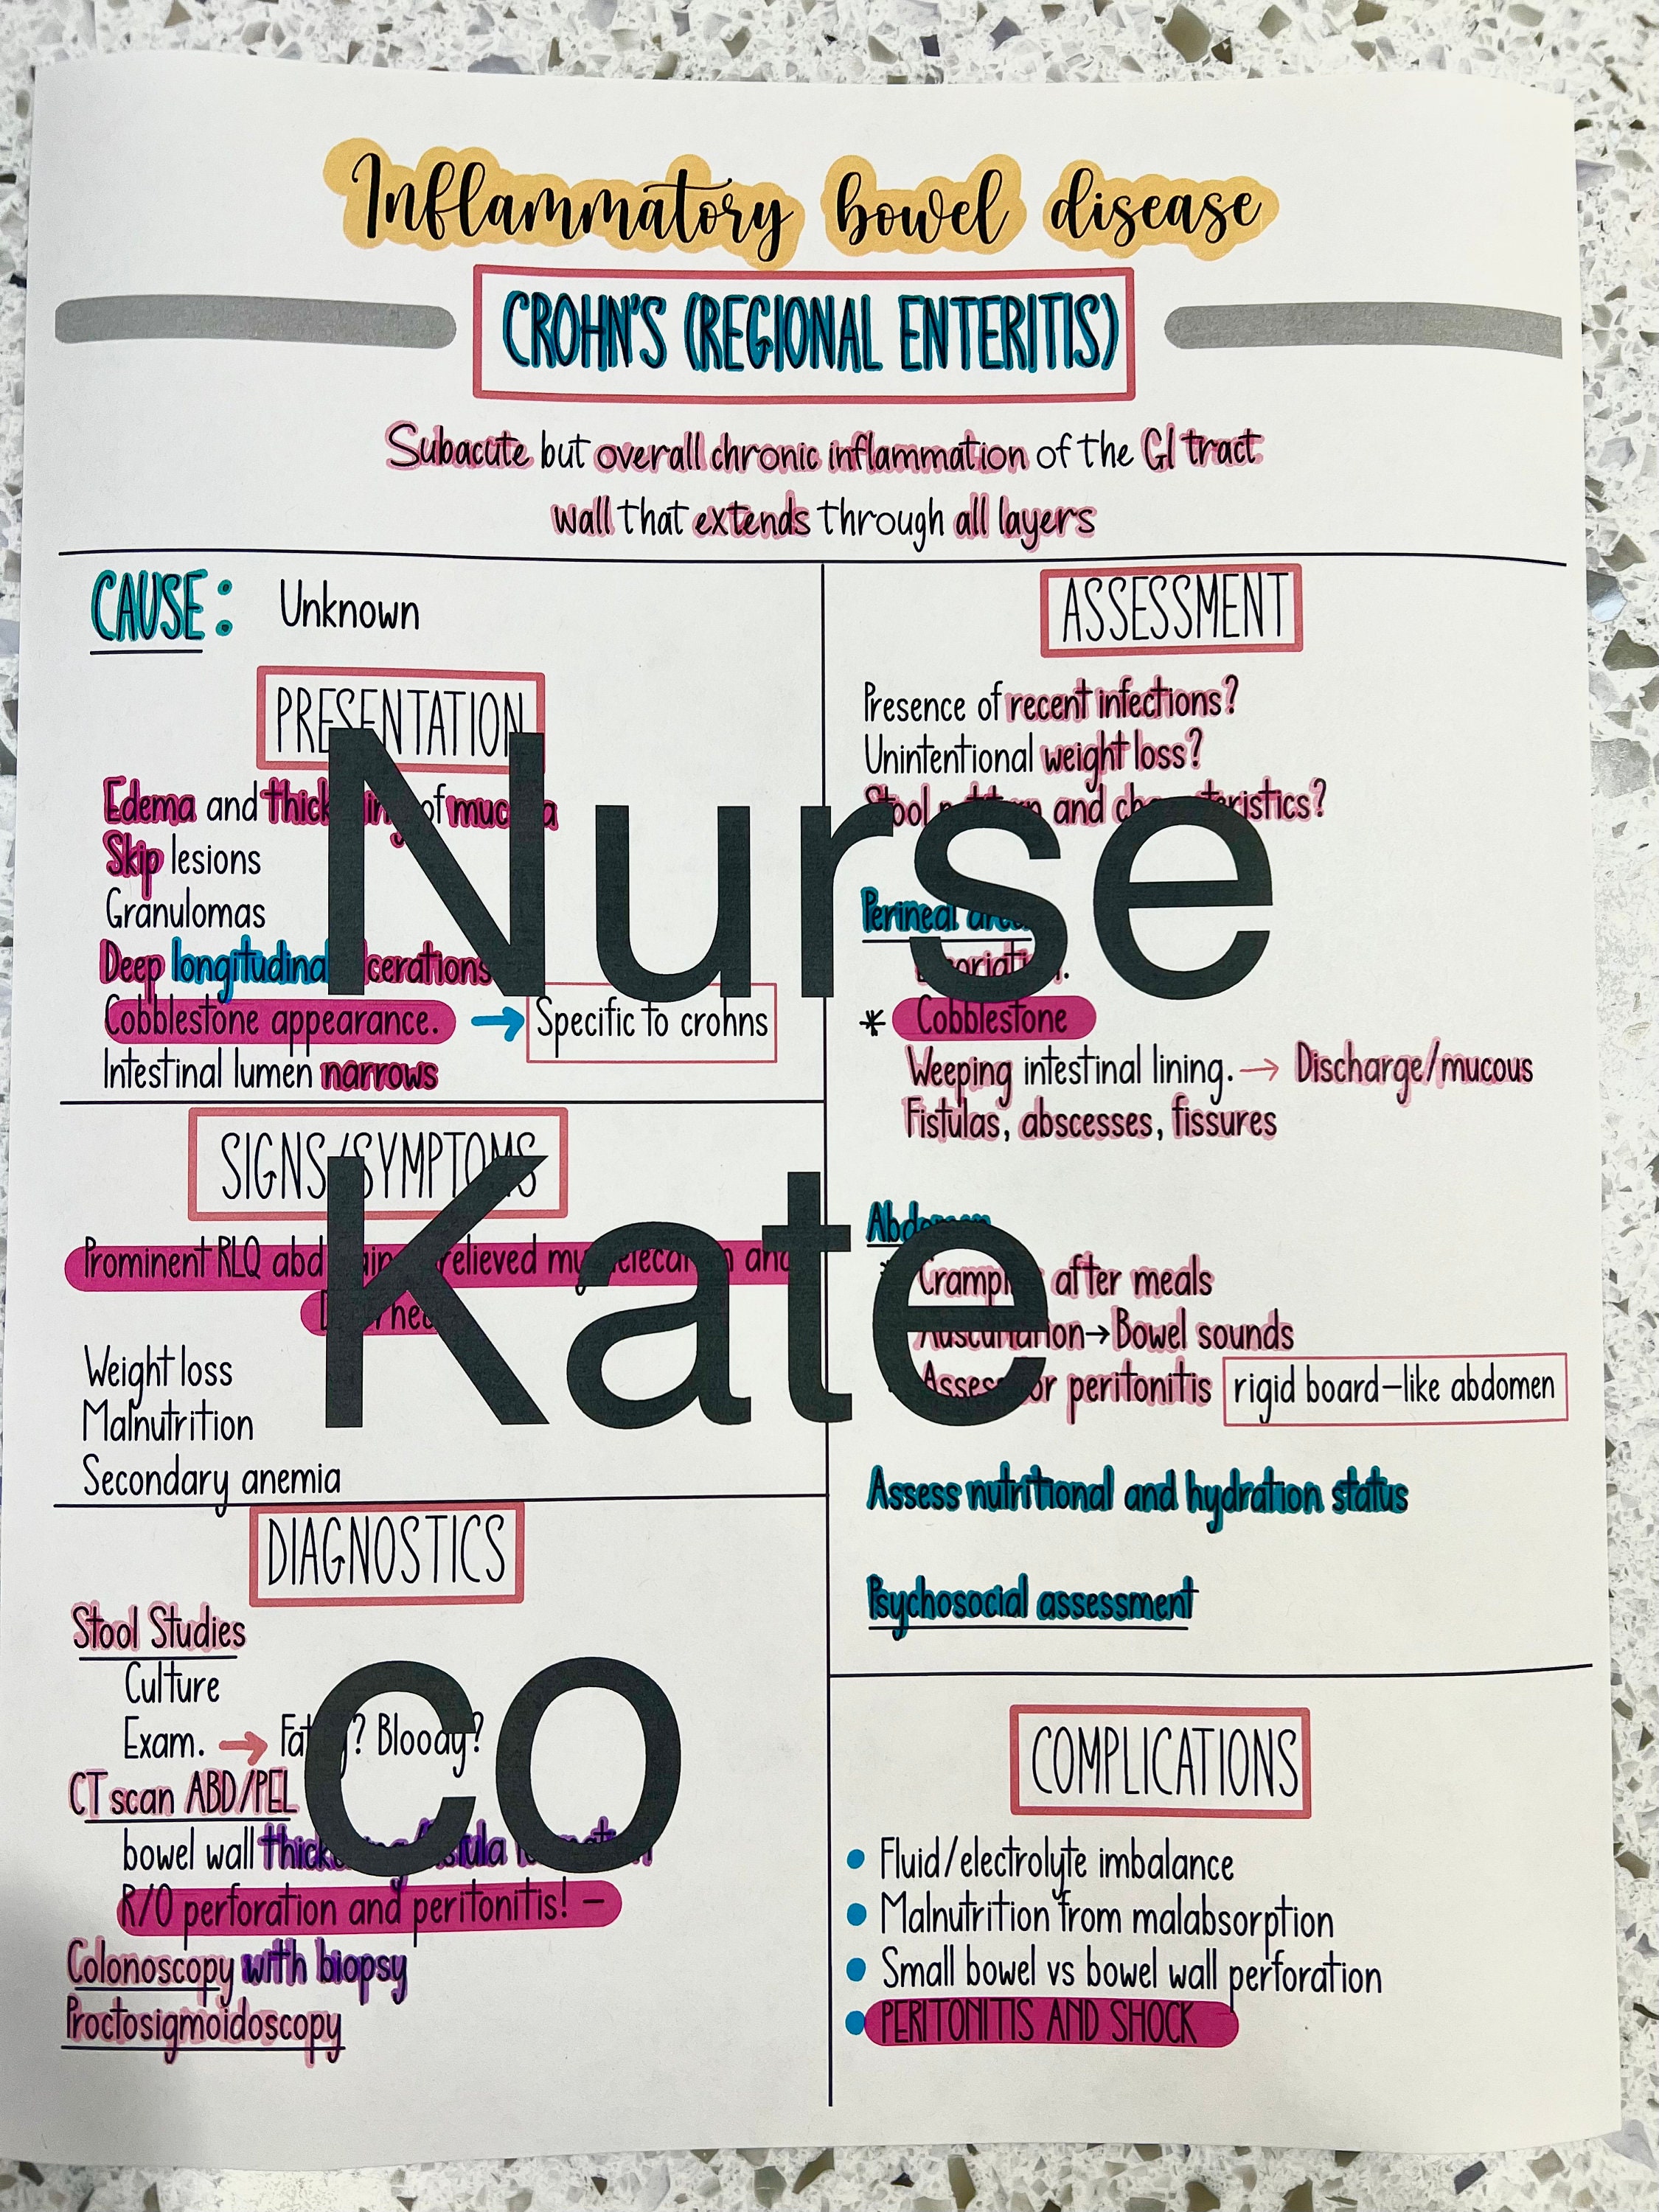 Inflammatory bowel disease
CROHN'S (REGIONAL ENTERITIS)
Subacute but overall chronic inflammation of the GI tract
wall that extends through all layers
CAUSE: Unknown
PRESENTATION
Edema and of
Skip lesions
Granulomas
Deep longitudinal
Cobblestone appearance. → Specific to crohns
Intestinal lumen narrows
SIGNS/SYMPTOMS
Prominent RLQ abd relieved my and
Weight loss
Malnutrition
Secondary anemia
DIAGNOSTICS
Stool Studies
Culture
Exam. → Bloody?
CT scan ABD/PEL
bowel wall
R/O perforation and peritonitis! –
Colonoscopy with biopsy
Proctosigmoidoscopy
ASSESSMENT
Presence of recent infections?
Unintentional weight loss?
Stool and
Perineal
* Cobblestone
Weeping intestinal lining. → Discharge/mucous
Fistulas, abscesses, fissures
Abdomen
Cramping after meals
Auscultation→Bowel sounds
Assess for peritonitis rigid board-like abdomen
Assess nutritional and hydration status
Psychosocial assessment
COMPLICATIONS
• Fluid/electrolyte imbalance
• Malnutrition from malabsorption
• Small bowel vs bowel wall perforation
• PERITONITIS AND SHOCK
Nurse
Kate
co